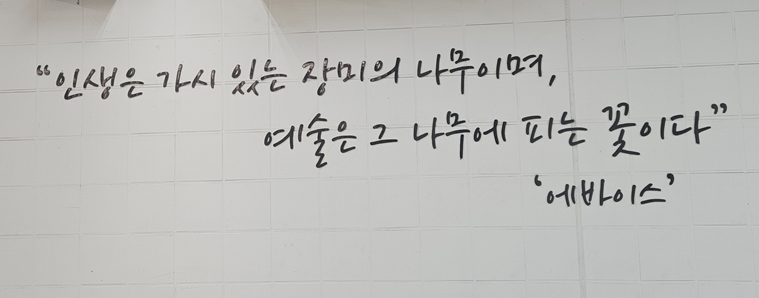 “인생은 가시 있는 장미의 나무이며,
예술은 그 나무에 피는 꽃이다”
‘에바이스’